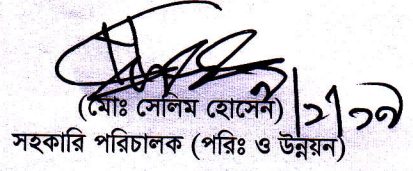 (মোঃ সেলিম হোসেন)
সহকারি পরিচালক (পরিঃ ও উন্নয়ন)